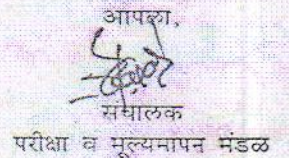 आपला,
संचालक
परीक्षा व मूल्यमापन मंडळ